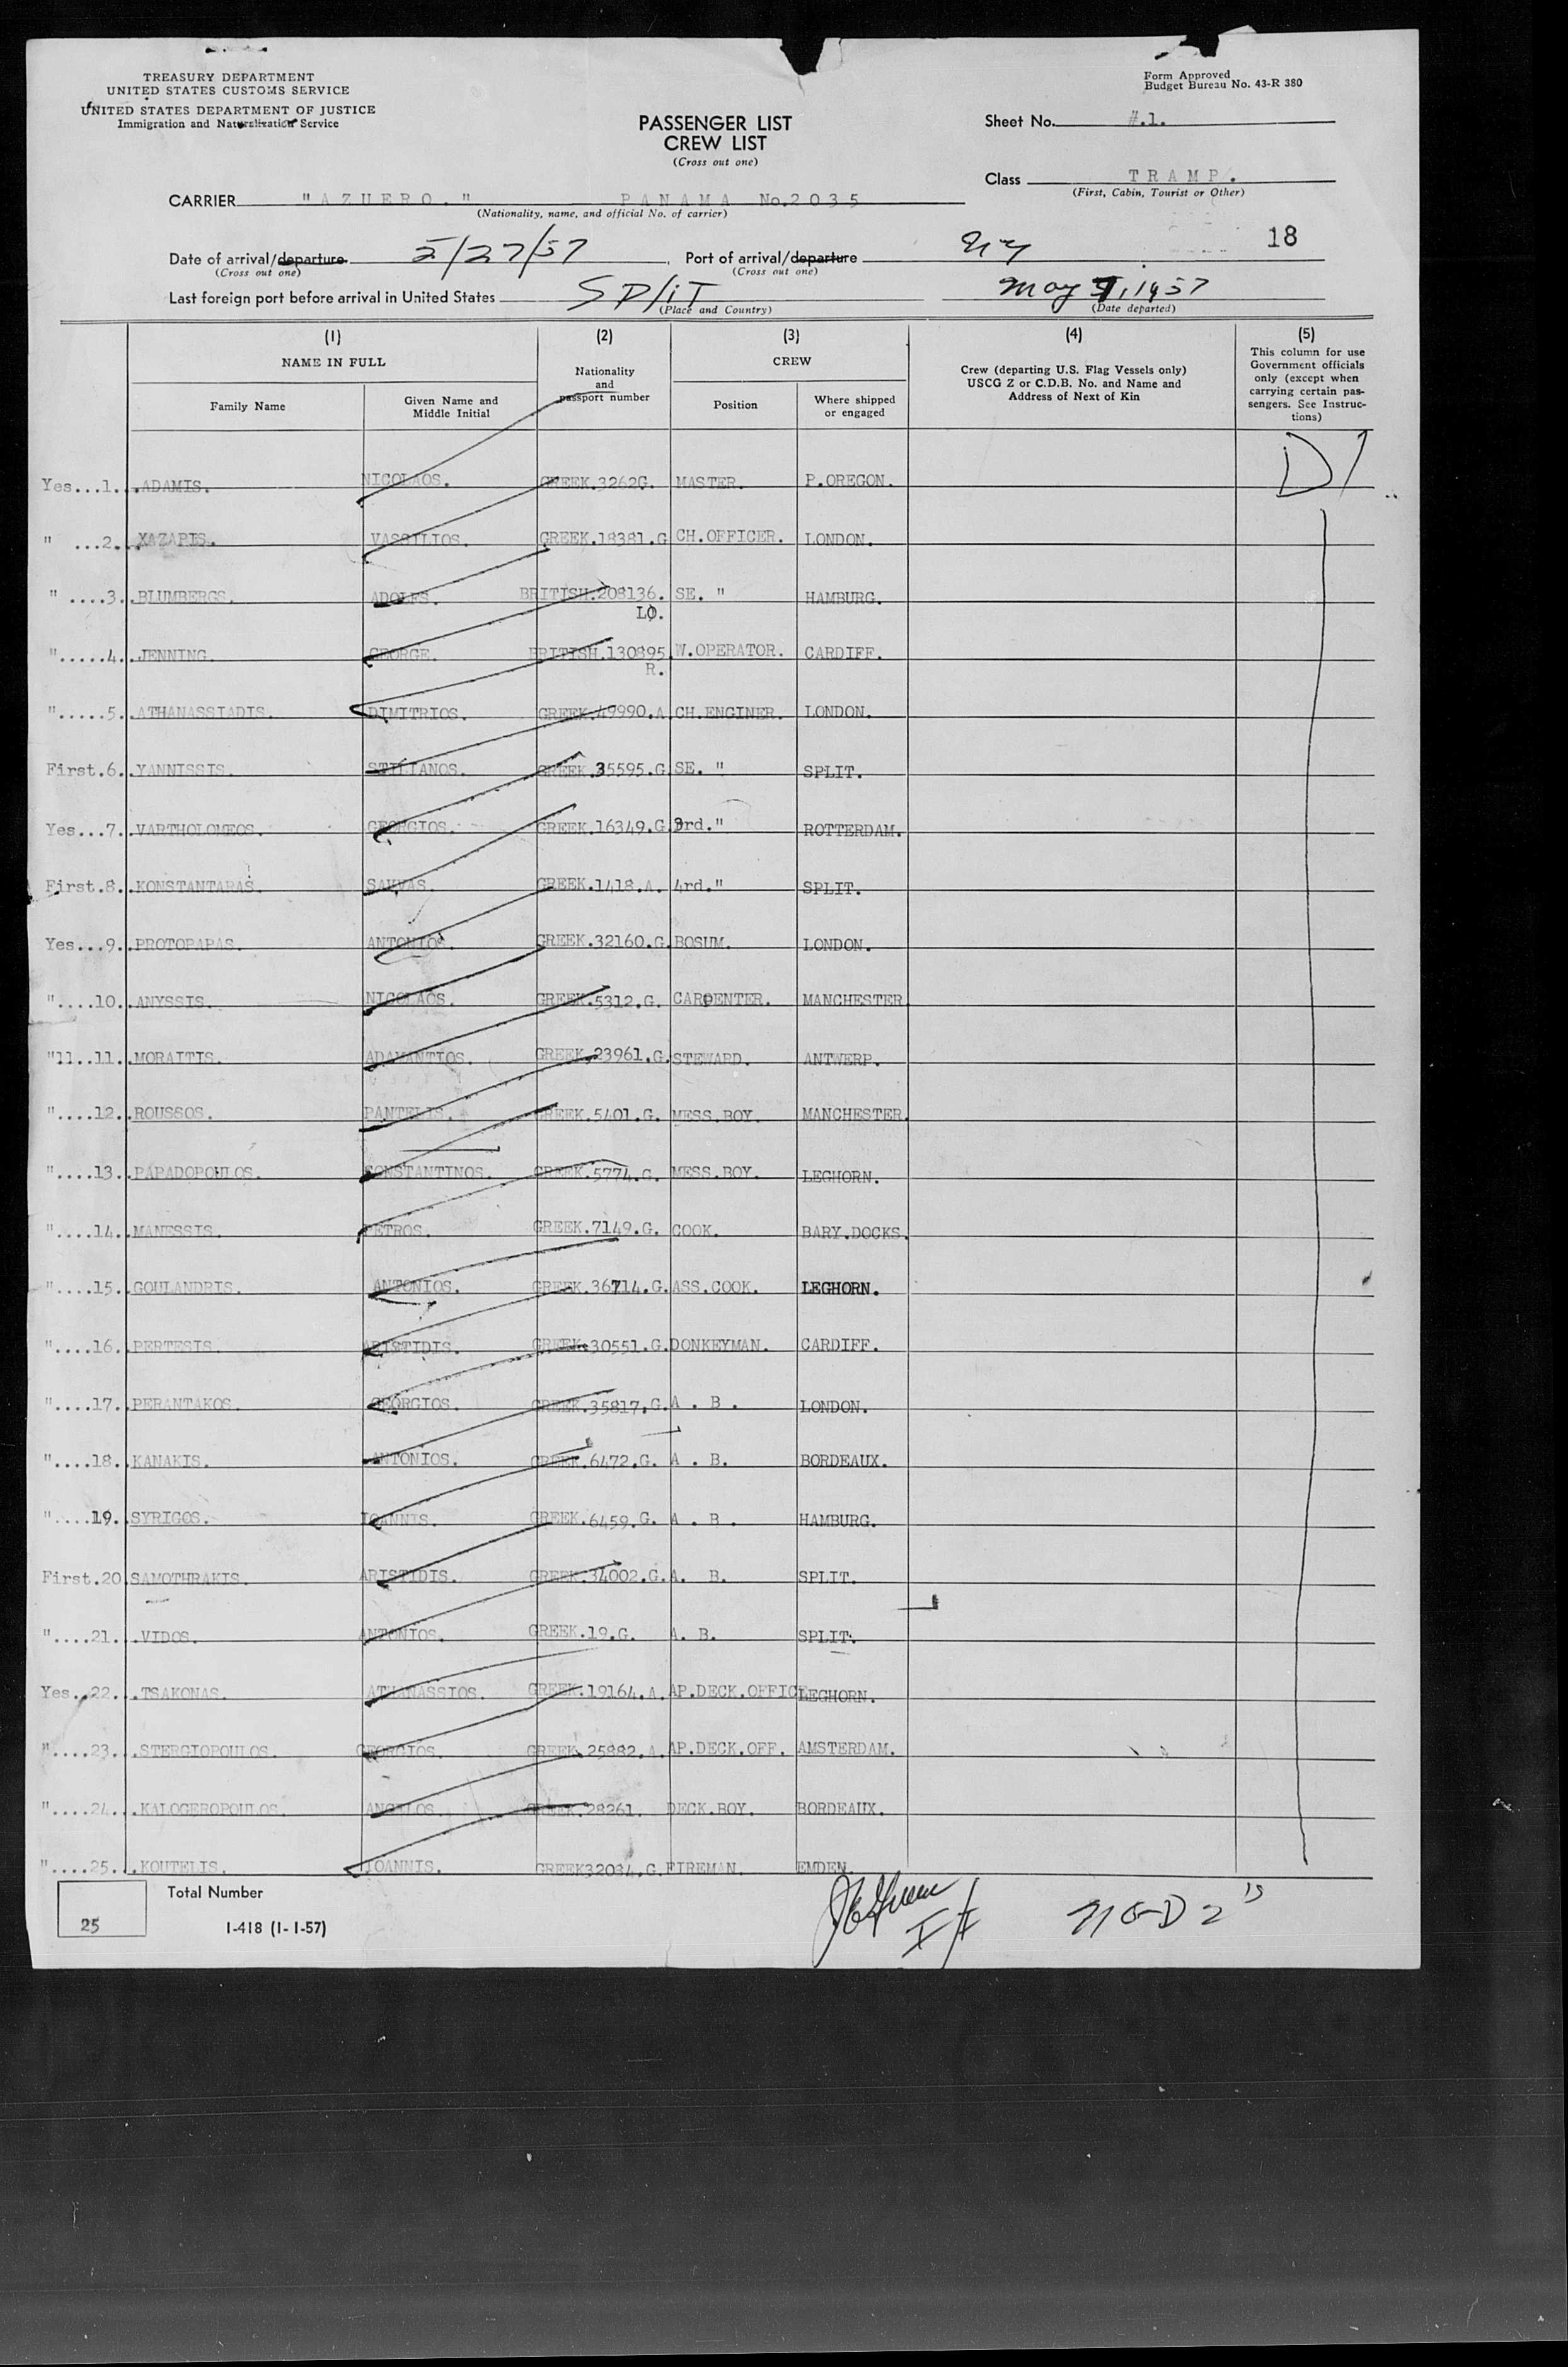 TREASURY DEPARTMENT
UNITED STATES CUSTOMS SERVICE
UNITED STATES DEPARTMENT OF JUSTICE
Immigration and Naturalization Service
Form Approved
Budget Bureau No. 43-R 380
PASSENGER LIST
CREW LIST
(Cross out one)
Sheet No. #.1.
Class TRAMP.
(First, Cabin, Tourist or Other)
CARRIER "AZUERO." PANAMA No.2035
(Nationality, name, and official No. of carrier)
18
Date of arrival/departure 5/27/57, Port of arrival/departure NY
(Cross out one) (Cross out one)
Last foreign port before arrival in United States SPLIT May 7, 1957
(Place and Country) (Date departed)
(1) (2) (3) (4) (5)
NAME IN FULL
Family Name
Given Name and Middle Initial
Nationality and passport number
CREW
Position
Where shipped or engaged
Crew (departing U.S. Flag Vessels only)
USCG Z or C.D.B. No. and Name and
Address of Next of Kin
This column for use
Government officials
only (except when
carrying certain pas-
sengers. See Instruc-
tions)
D1
Yes...1. ADAMIS. NICOLAOS. GREEK.3262G. MASTER. P.OREGON.
" ...2. XAZAPIS. VASSILIOS. GREEK.18381.G CH.OFFICER. LONDON.
" ....3. BLUMBERGS. ADOLFS. BRITISH.208136. LO. SE. " HAMBURG.
".....4. JENNING. GEORGE. BRITISH.130895 R. W.OPERATOR. CARDIFF.
".....5. ATHANASSIADIS. DIMITRIOS. GREEK.49990.A CH.ENGINER. LONDON.
First.6. YANNISSIS. STILIANOS. GREEK.35595.G SE. " SPLIT.
Yes...7. VARTHOLOMEOS. GEORGIOS. GREEK.16349.G 3rd." ROTTERDAM.
First.8. KONSTANTARAS. SAVVAS. GREEK.1418.A. 4rd." SPLIT.
Yes...9. PROTOPAPAS. ANTONIOS. GREEK.32160.G BOSUM. LONDON.
"....10. ANYSSIS. NICOLAOS. GREEK.5312.G. CARPENTER. MANCHESTER
"11..11. MORAITIS. ADAMANTIOS. GREEK.23961.G. STEWARD. ANTWERP.
"....12. ROUSSOS. PANTELIS. GREEK.5401.G. MESS.BOY. MANCHESTER.
"....13. PAPADOPOULOS. CONSTANTINOS. GREEK.5774.G. MESS.BOY. LEGHORN.
"....14. MANESSIS. PETROS. GREEK.7149.G. COOK. BARY.DOCKS.
"....15. GOULANDRIS. ANTONIOS. GREEK.36714.G. ASS.COOK. LEGHORN.
"....16. PERTESIS. ARISTIDIS. GREEK.30551.G. DONKEYMAN. CARDIFF.
"....17. PERANTAKOS. GEORGIOS. GREEK.35817.G. A . B . LONDON.
"....18. KANAKIS. ANTONIOS. GREEK.6472.G. A . B. BORDEAUX.
"....19. SYRIGOS. IOANNIS. GREEK.6459.G. A . B . HAMBURG.
First.20 SAMOTHRAKIS. ARISTIDIS. GREEK.34002.G. A. B. SPLIT.
"....21. VIDOS. ANTONIOS. GREEK.19.G. A. B. SPLIT.
Yes..22. TSAKONAS. ATHANASSIOS. GREEK.19164.A. AP.DECK.OFFIC LEGHORN.
"....23. STERGIOPOULOS. GEORGIOS. GREEK.25882.A. AP.DECK.OFF. AMSTERDAM.
"....24. KALOGEROPOULOS. ANGELOS. GREEK.28261. DECK.BOY. BORDEAUX.
"....25. KOUTELIS. IOANNIS. GREEK32034.G. FIREMAN. EMDEN.
25 Total Number
I-418 (1-1-57)